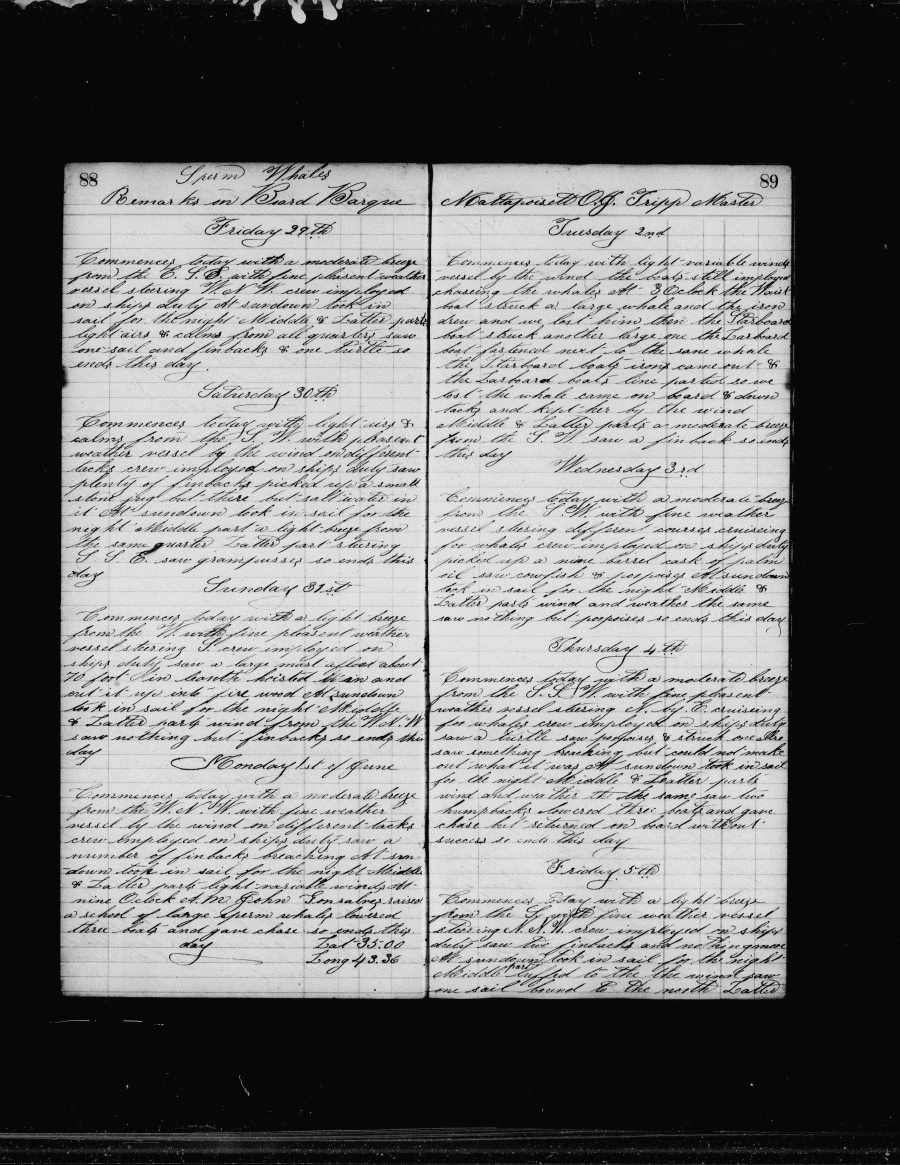 88
Sperm Whales
Remarks on Board Barque
Friday 29th
Commences today with a moderate breeze
from the E. S. E with fine pleasent weather
vessel steering W. N W crew imployed
on ships duty At sundown took in
sail for the night Middle & Latter parts
light airs & calms from all quarters saw
one sail and finbacks & one turtle so
ends this day
Saturday 30th
Commences today with light airs &
calms from the S. W with pleasent
weather vessel by the wind on different
tacks crew imployed on ships duty saw
plenty of finbacks picked up a small
stone jug but there but salt water in
it At sundown took in sail for the
night Middle part a light breeze from
the same quarter Latter part steering
S. S. E. saw grampusses so ends this
day
Sunday 31st
Commences today with a light breeze
from the W. with fine pleasent weather
vessel steering S. crew imployed on
ships duty saw a large mast afloat about
70 foot in length hoisted it in and
cut it up into fire wood At sundown
took in sail for the night Middle
& Latter parts wind from the W N W
saw nothing but finbacks so ends this
day
Monday 1st of June
Commences today with a moderate breeze
from the W. N. W. with fine weather
vessel by the wind on different tacks
crew employed on ships duty saw a
number of finbacks breaching At sun-
down took in sail for the night Middle
& Latter parts light variable winds At
nine Oclock A.M John Gonsalves raised
a school of large sperm whales lowered
three boats and gave chase so ends this
day Lat 35.00
Long 43.36
89
Mattapoisett O.J. Tripp Master
Tuesday 2nd
Commences today with light variable winds
vessel by the wind the boats still imployed
chasing the whales At 3 Oclock the Waist
boat struck a large whale and the iron
drew and we lost him then the Starboard
boat struck another large one the Larboard
boat fastened next to the same whale
the Starboard boats irons came out &
the Larboard boats line parted so we
lost the whale came on board & down
tacks and kept her by the wind
Middle & Latter parts a moderate breeze
from the S. W saw a finback so ends
this day
Wednesday 3rd
Commences today with a moderate breeze
from the S. W. with fine weather
vessel steering differen courses cruiseing
for whales crew imployed on ships duty
picked up a nine birrel cask of palm
oil saw cowfish & porpoises At sundown
took in sail for the night Middle &
Latter parts wind and weather the same
saw nothing but porpoises so ends this day
Thursday 4th
Commences today with a moderate breeze
from the S. S. W with fine pleasent
weather vessel steering N. by E. cruising
for whales crew employed on ships duty
saw a turtle saw porpoises & struck one
saw something breaching but could not make
out what it was At sundown took in sail
for the night Middle & Latter parts
wind and weather the same saw two
humpbacks lowered three boats and gave
chase but returned on board without
success so ends this day
Friday 5th
Commences today with a light breeze
from the with fine weather vessel
steering N. N. W. crew imployed on ships
duty saw two finbacks and nothing more
At sundown took in sail for the night
Middle part luffed to the the wind saw
one sail bound to the north Latter